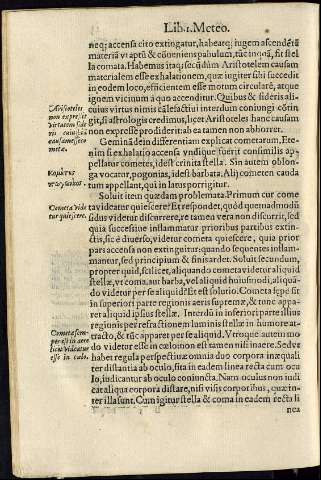 Lib. 1. Meteo.
neq; accensa cito extingatur, habeatq; iugem ascendẽtẽ
materiã vt aptũ & cõueniens pabulum, tũc inquã, fit stel
la comata. Habemus itaq; secũdũm Aristotelem causam
materialem esse exhalationem, quæ iugiter sibi succedit
in eodem loco, efficientem esse motum circularē, atque
ignem vicinum à quo accenditur. Quibus & sideris ali-
cuius virtus nimis calefactiui interdum coniungi côtin
git, si astrologis credimus, licet Aristoteles hanc causam
non expresse prodiderit: ab ea tamen non abhorret.
Aristoteles
non expresse
cometæ.
Geminã dein differentiam explicat cometarum, Ete-
nim si exhalatio accensa vndique fuerit consimilis ap-
pellatur cometes, idest crinita stella. Sin autem oblon-
ga vocatur, pogonias, idest barbata. Alij cometen cauda
tum appellant, qui in latus porrigitur.
Soluit item quædam problemata. Primum cur come
ta videatur quiescere? Et respondet, quòd quemadmodũ
sidus videtur discurrere, re tamen vera non discurrit, sed
quia successiue inflammatur prioribus partibus extin-
ctis, sic è diuerso, videtur cometa quiescere, quia prior
pars accensi non extinguitur: quando sequentes inflam-
mantur, sed principium & finis ardet. Soluit secundum,
propter quid, scilicet, aliquando cometa videtur aliquid
stellæ, vt coma, aut barba, vel aliquid huiusmodi, aliquã-
do videtur per se aliquid? Et est solutio. Cometa sępe fit
in superiori parte regionis aeris supremæ, & tunc appa-
ret aliquid ipsius stellæ. Interdũ in inferiori parte illius
regionis per refractionem luminis stellæ in humore at-
tracto, & tũc apparet per se aliquid. Vtroque autem mo
do videtur esse in cælo non est tamen nisi in aere. Sed vt
habet regula perspectiuæ: omnia duo corpora inæqual̃i
ter distantia ab oculo, sita in eadem linea recta cum ocu
lo, iudicantur ab oculo coniuncta. Nam oculus non iudi
cat aliqua corpora distare, nisi visis corporibus, quæ in-
ter illa sunt. Cum igitur stella & coma in eadem recta li
nea
Cometa vide
tur quiescere.